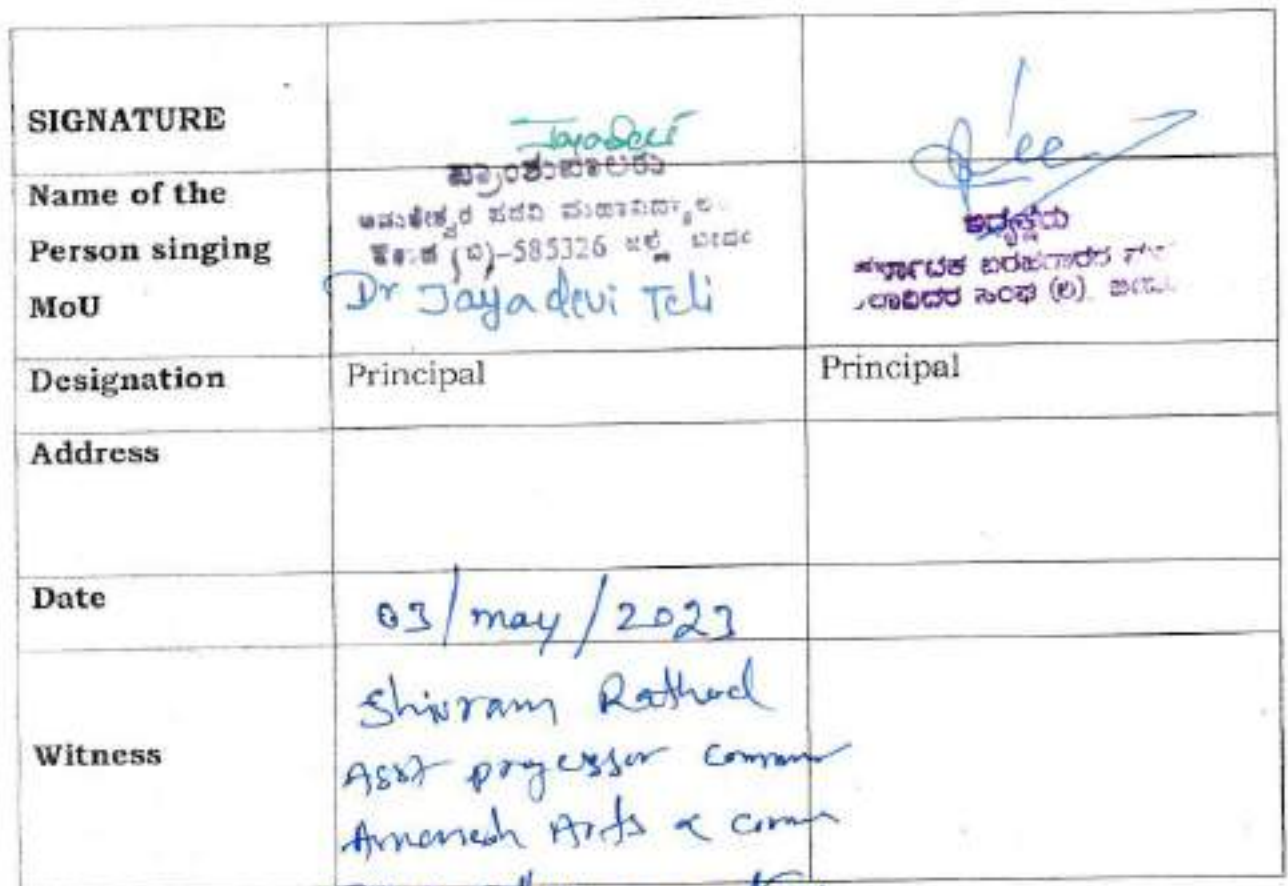 SIGNATURE
Jayadevi
ಪ್ರಾಂಶುಪಾಲರು
Name of the
Person singing
MoU
ಅಮರೇಶ್ವರ ಪದವಿ ಮಹಾವಿದ್ಯಾಲ
(ಬಿ)-585326 ಜಿಲ್ಲೆ ಬೀದರ
Dr Jayadevi Teli
ಅಧ್ಯಕ್ಷರು
ಕರ್ನಾಟಕ ಬರಹಗಾರರ
ಕಲಾವಿದರ ಸಂಘ (ರಿ)
Designation
Principal
Principal
Address
Date
03/may/2023
Witness
Shivram Rathod
Asst professor
Arts &